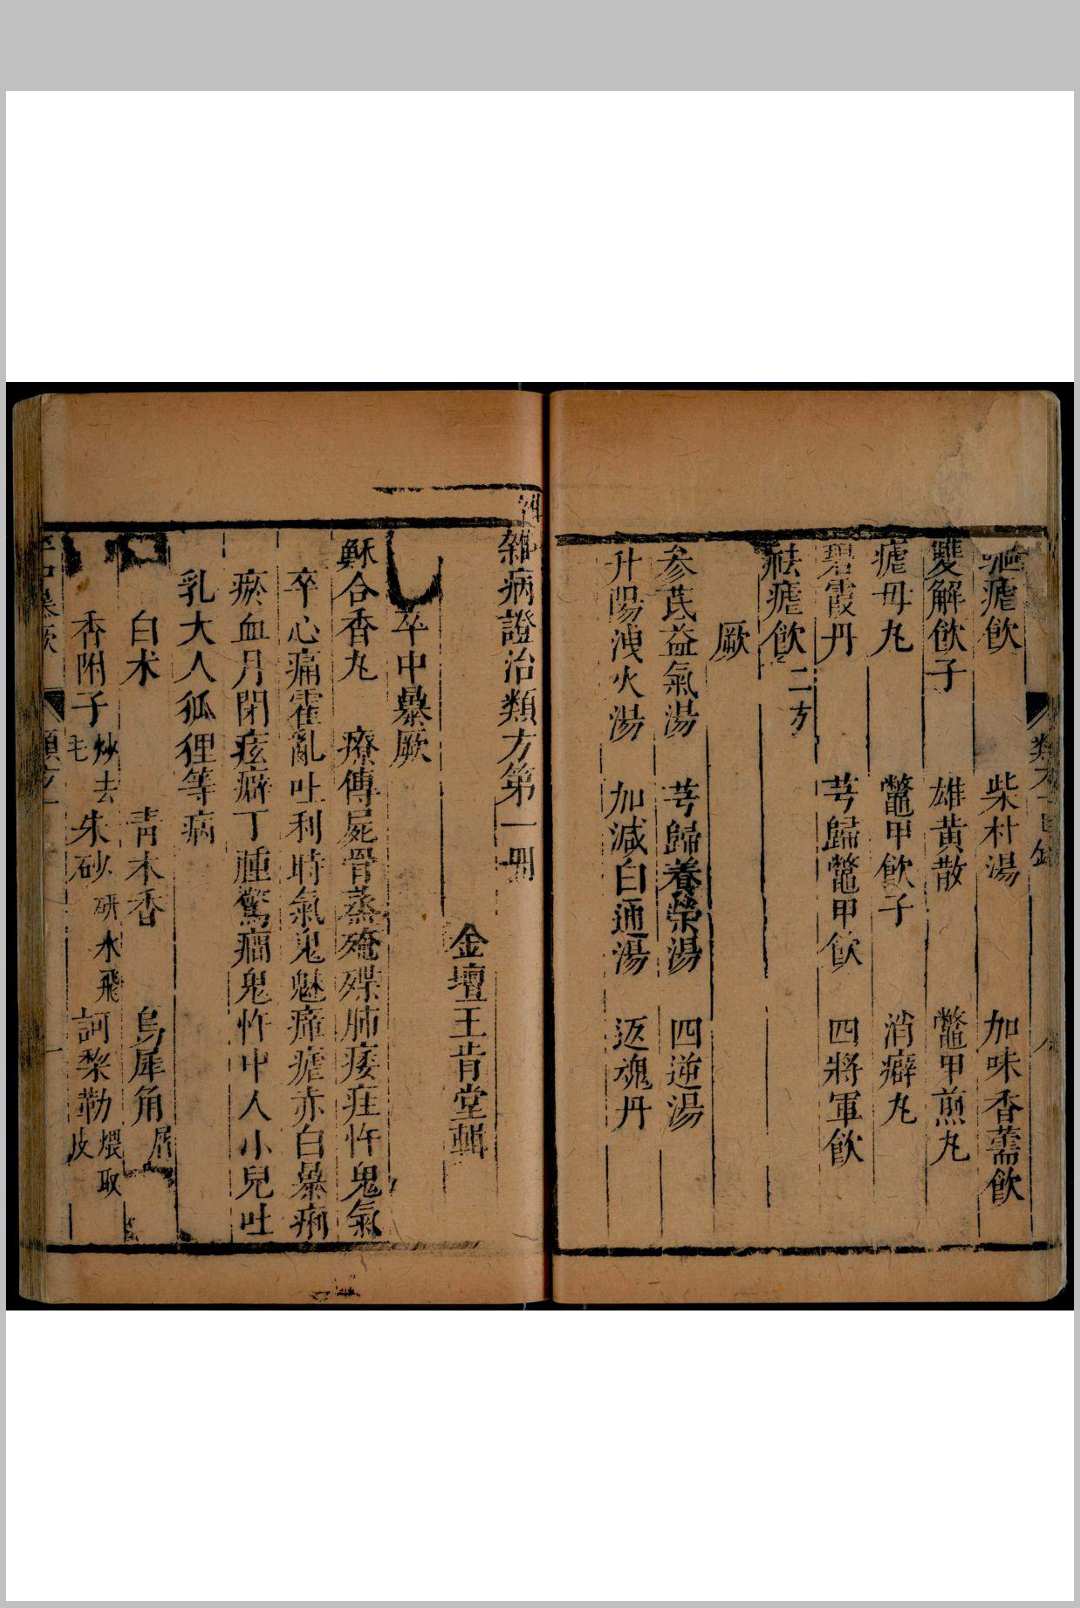 瘧飲　柴朴湯　加味香薷飲
雙解飲子　雄黃散　鼈甲煎丸
瘧母丸　鼈甲飲子　消癖丸
碧霞丹　芎歸鼈甲飲　四將軍飲
祛瘧飲二方
厥
參芪益氣湯　芎歸養榮湯　四逆湯
升陽洩火湯　加減白通湯　返魂丹
雜病證治類方第一冊
金壇王肯堂輯
卒中暴厥
穌合香丸　療傳屍骨蒸殗殜肺痿疰忤鬼氣
卒心痛霍亂吐利時氣鬼魅瘴瘧赤白暴痢
瘀血月閉痃癖丁腫驚癎鬼忤中人小兒吐
乳大人狐狸等病
白朮　青木香　烏犀角屑
香附子炒去毛　朱砂研水飛　訶棃勒煨取皮